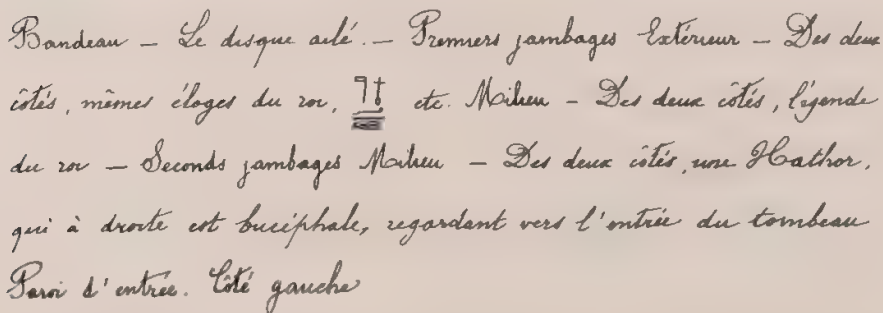 Bandeau – Le disque ailé. – Premiers jambages Extérieur – Des deux
côtés, mêmes éloges du roi, 𓊹𓄤 etc. Milieu – Des deux côtés, légende
du roi – Seconds jambages Milieu – Des deux côtés, une Hathor,
qui à droite est bucéphale, regardant vers l'entrée du tombeau
Paroi d'entrée. Côté gauche